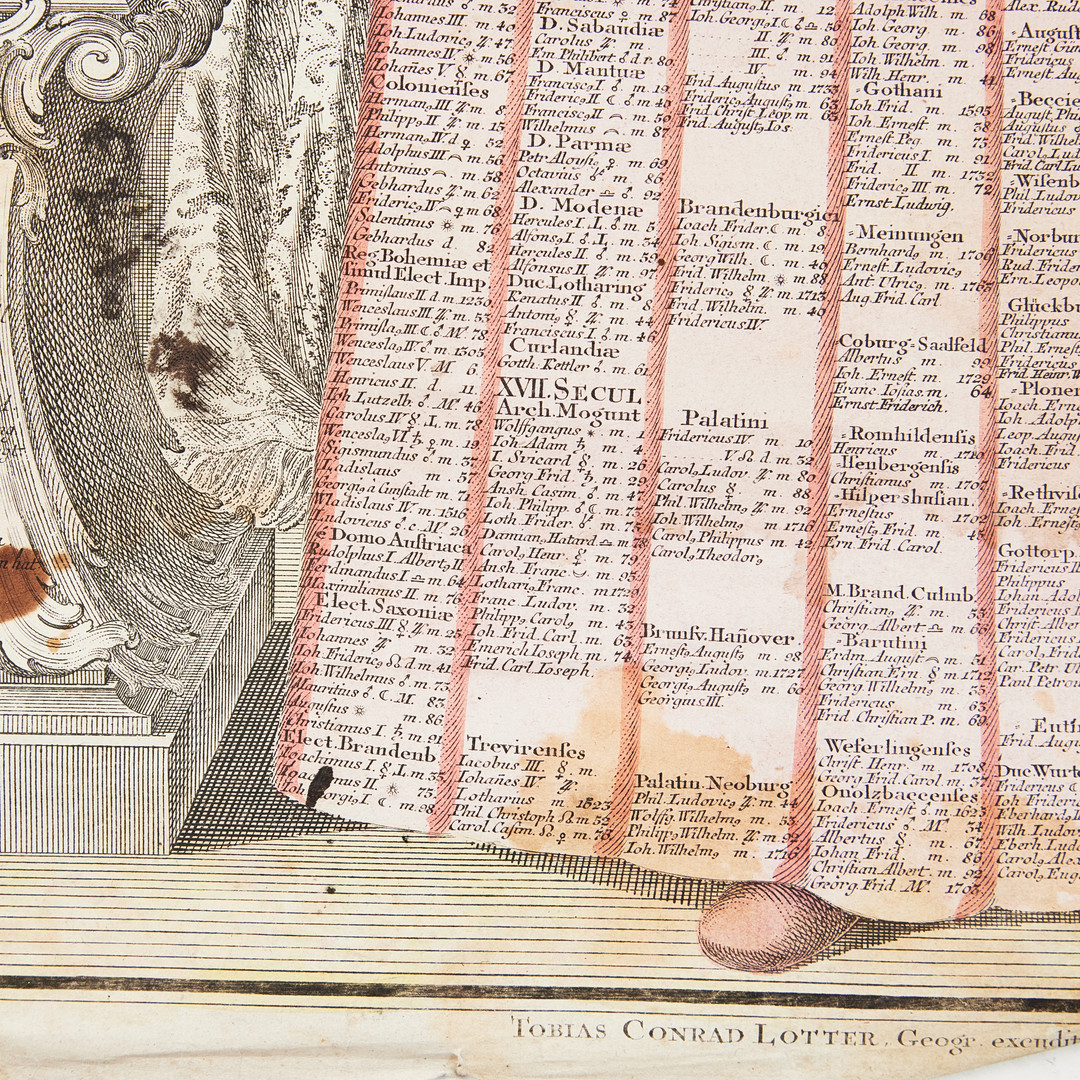 Iohannes III m. 40
Ioh. Ludovic, m. 47
Iohannes IV m 56
Iohañes V m. 67
Colonienses
Herman, III m 8
Philipp, II m. 15
Herman, IV. d 52
Adolphus III m. 56
Antonius m. 58
Gebhardus m. 62
Frideric, IV m 68
Salentinus m. 76
Gebhardus d. 82
Reg Bohemiæ et
simul Elect Imp
Primislaus II d m. 1230
Wenceslaus III m. 53
Primisla, III M. 78
Wencesla, IV m. 1305
Wenceslaus V M 6
Henricus II. d. 11
Ioh. Lutzelb M. 46
Carolus IV L m. 78
Wencesla, VI m. 19
Sigismundus m. 37
Ladislaus m. 57
Georgi, a Cunstadt m. 71
Wladislaus IV m. 1516
Ludovicus c. M. 26
e Domo Austriaca
Rudolphus I. Albert, II
Ferdinandus I m. 64
Maximilianus II m. 76
Elect. Saxoniæ
Fridericus III m 25
Iohannes m. 32
Ioh. Frideric, d. m. 41
Ioh. Wilhelmus m. 73
Mauritius M 83
Augustus m. 86
Christianus I m. 91
Elect. Brandenb
Ioachimus I L m. 35
Ioachimus II 75
Georgi, I m. 98
Franciscus m. 87
D. Sabaudiæ
Carolus m.
Em Philibert d r. 80
D. Mantuæ
Francisc, I m. 19
Frideric, II m. 40
Francisc, II m. 50
Wilhelmus m. 87
D. Parmæ
Petr Aloysi, m 69
Octavius m. 86
Alexander m. 92
D. Modenæ
Hercules I. L m. 5
Alfons, I L m. 34
Hercules II m. 59
Alfonsus II m. 97
Duc. Lotharing
Renatus II m. 8
Anton, m. 44
Franciscus I m. 46
Curlandiæ
Gotth. Kettler m. 61
XVII. SECUL
Arch. Mogunt
Wolffgangus m. 1
Ioh. Adam m. 4
I. Svicard m. 26
Georg Frid. m. 29
Ansh. Casim. m. 47
Ioh. Philipp. m. 73
Loth Frider. m. 75
Damian, Hatard m. 78
Carol, Henr. m. 79
Ansh. Franc. m. 95
Lothari, Franc. m. 1729
Franc. Ludov. m. 32
Philipp, Carol, m. 43
Ioh. Frid. Carl, m. 63
Emerich Ioseph m. 74
Frid. Carl. Ioseph.
Trevirenses
Iacobus III. m.
Iohañes IV
Lotharius m. 1623
Phil. Christoph m 52
Carol. Casim. m. 76
Christian, II m. 12
Ioh. Georg, I m 56
II m. 80
III. m. 91
IV m. 94
Frid Augustus m. 1733
Frideric, August, m. 63
Frid. Christ Leop m. 63
Frid. August, Ios.
Brandenburgici
Ioach Frider. m. 8
Ioh. Sigism. m. 19
Georg Wilh. m. 40
Frid. Wilhelm m 88
Frideric, m. 1713
Frid. Wilhelm. m. 40
Fridericus IV.
Palatini
Fridericus IV m. 10
V d. m. 32
Carol, Ludov. m. 80
Carolus m. 88
Phil. Wilhelm, m 92
Ioh Wilhelm, m 1716
Carol, Philippus m. 42
Carol, Theodor,
Brunsv. Hañover
Ernest, August, m. 98
Georg, Ludov. m. 1727
Georg, August, m. 60
Georgius III.
Palatin. Neoburg
Phil. Ludovic, m. 44
Wolffg. Wilhelm, m. 53
Philipp, Wilhelm. m. 92
Ioh. Wilhelm, m. 1716
Adolph Wilh. m. 68
Ioh. Georg m. 86
Ioh. Georg m. 98
Ioh Wilhelm m.
Wilh Henr. m. 41
Gothani
Ioh Frid. m. 1595
Ioh. Ernest. m. 38
Ernest Peg m. 75
Fridericus I. m. 91
Frid. II m. 1732
Frideric, III m. 72
Ernst Ludwig.
Meinungen
Bernhard, m. 1706
Ernest Ludovic,
Ant Ulric, m. 1763
Aug. Frid. Carl
Coburg-Saalfeld
Albertus m. 99
Ioh. Ernest. m. 1729
Franc Iosias. m. 64
Ernst Friderich.
Romhildensis
Henricus m. 1710
Ilenbergensis
Christianus m. 1707
Hilpershusian
Ernestus m. 1702
Ernest, Frid. m. 45
Ern Frid. Carol.
M. Brand. Culmb.
Christian, m. 55
Georg. Albert m. 66
Barutini
Erdm. August m. 51
Christian Ern. m 1712
Georg Wilhelm, m. 35
Fridericus m. 63
Frid. Christian P. m. 69
Weferlingenses
Christ. Henr. m. 1708
Georg Frid Carol, m. 35
Onolzbaccenses
Ioach Ernest m. 1625
Fridericus M. 34
Albertus m. 67
Iohan Frid. m. 86
Christian Albert m. 92
Georg. Frid. M. 1703
Alex. Rud
August
Ernest Gün
Fridericus
Ernest. Au
Beccie
August, Phi
Augustus
Frid. Wilhe
Carol, Lud
Frid. Carl Lu
Wisenb
Phil. Ludov
Fridericus
Norbur
Fridericus
Rud. Frider
Ern. Leopo
Glückbu
Philippus
Christianu
Phil. Ernest
Fridericus
Frid. Heinr. W
Plonen
Ioach. Erne
Ioh. Adolp
Leop. Augu
Ioach. Frid
Fridericus
Rethvis
Ioach. Ernes
Ioh. Ernest
Gottorp
Fridericus
Philippus
Iohan. Adol
Fridericus
Christ. Alber
Fridericus
Carol, Frid
Car. Petr. Ul
Paul Petrov
Eutin
Frid. Augu
Duc Wurte
Ioh Frideric
Eberhard, L
Wilh. Ludov
Eberh. Ludo
Carol, Alex
Carol, Eug
n hat
TOBIAS CONRAD LOTTER, Geogr. excudit